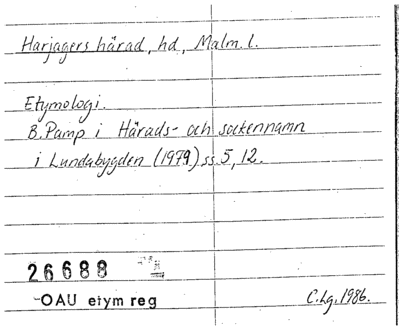 Harjagers härad, hd, Malm. l.
Etymologi.
B. Pamp i Härads- och sockennamn
i Lundabygden (1979) ss. 5, 12.
26688
OAU etym reg
C. Lg. 1986.